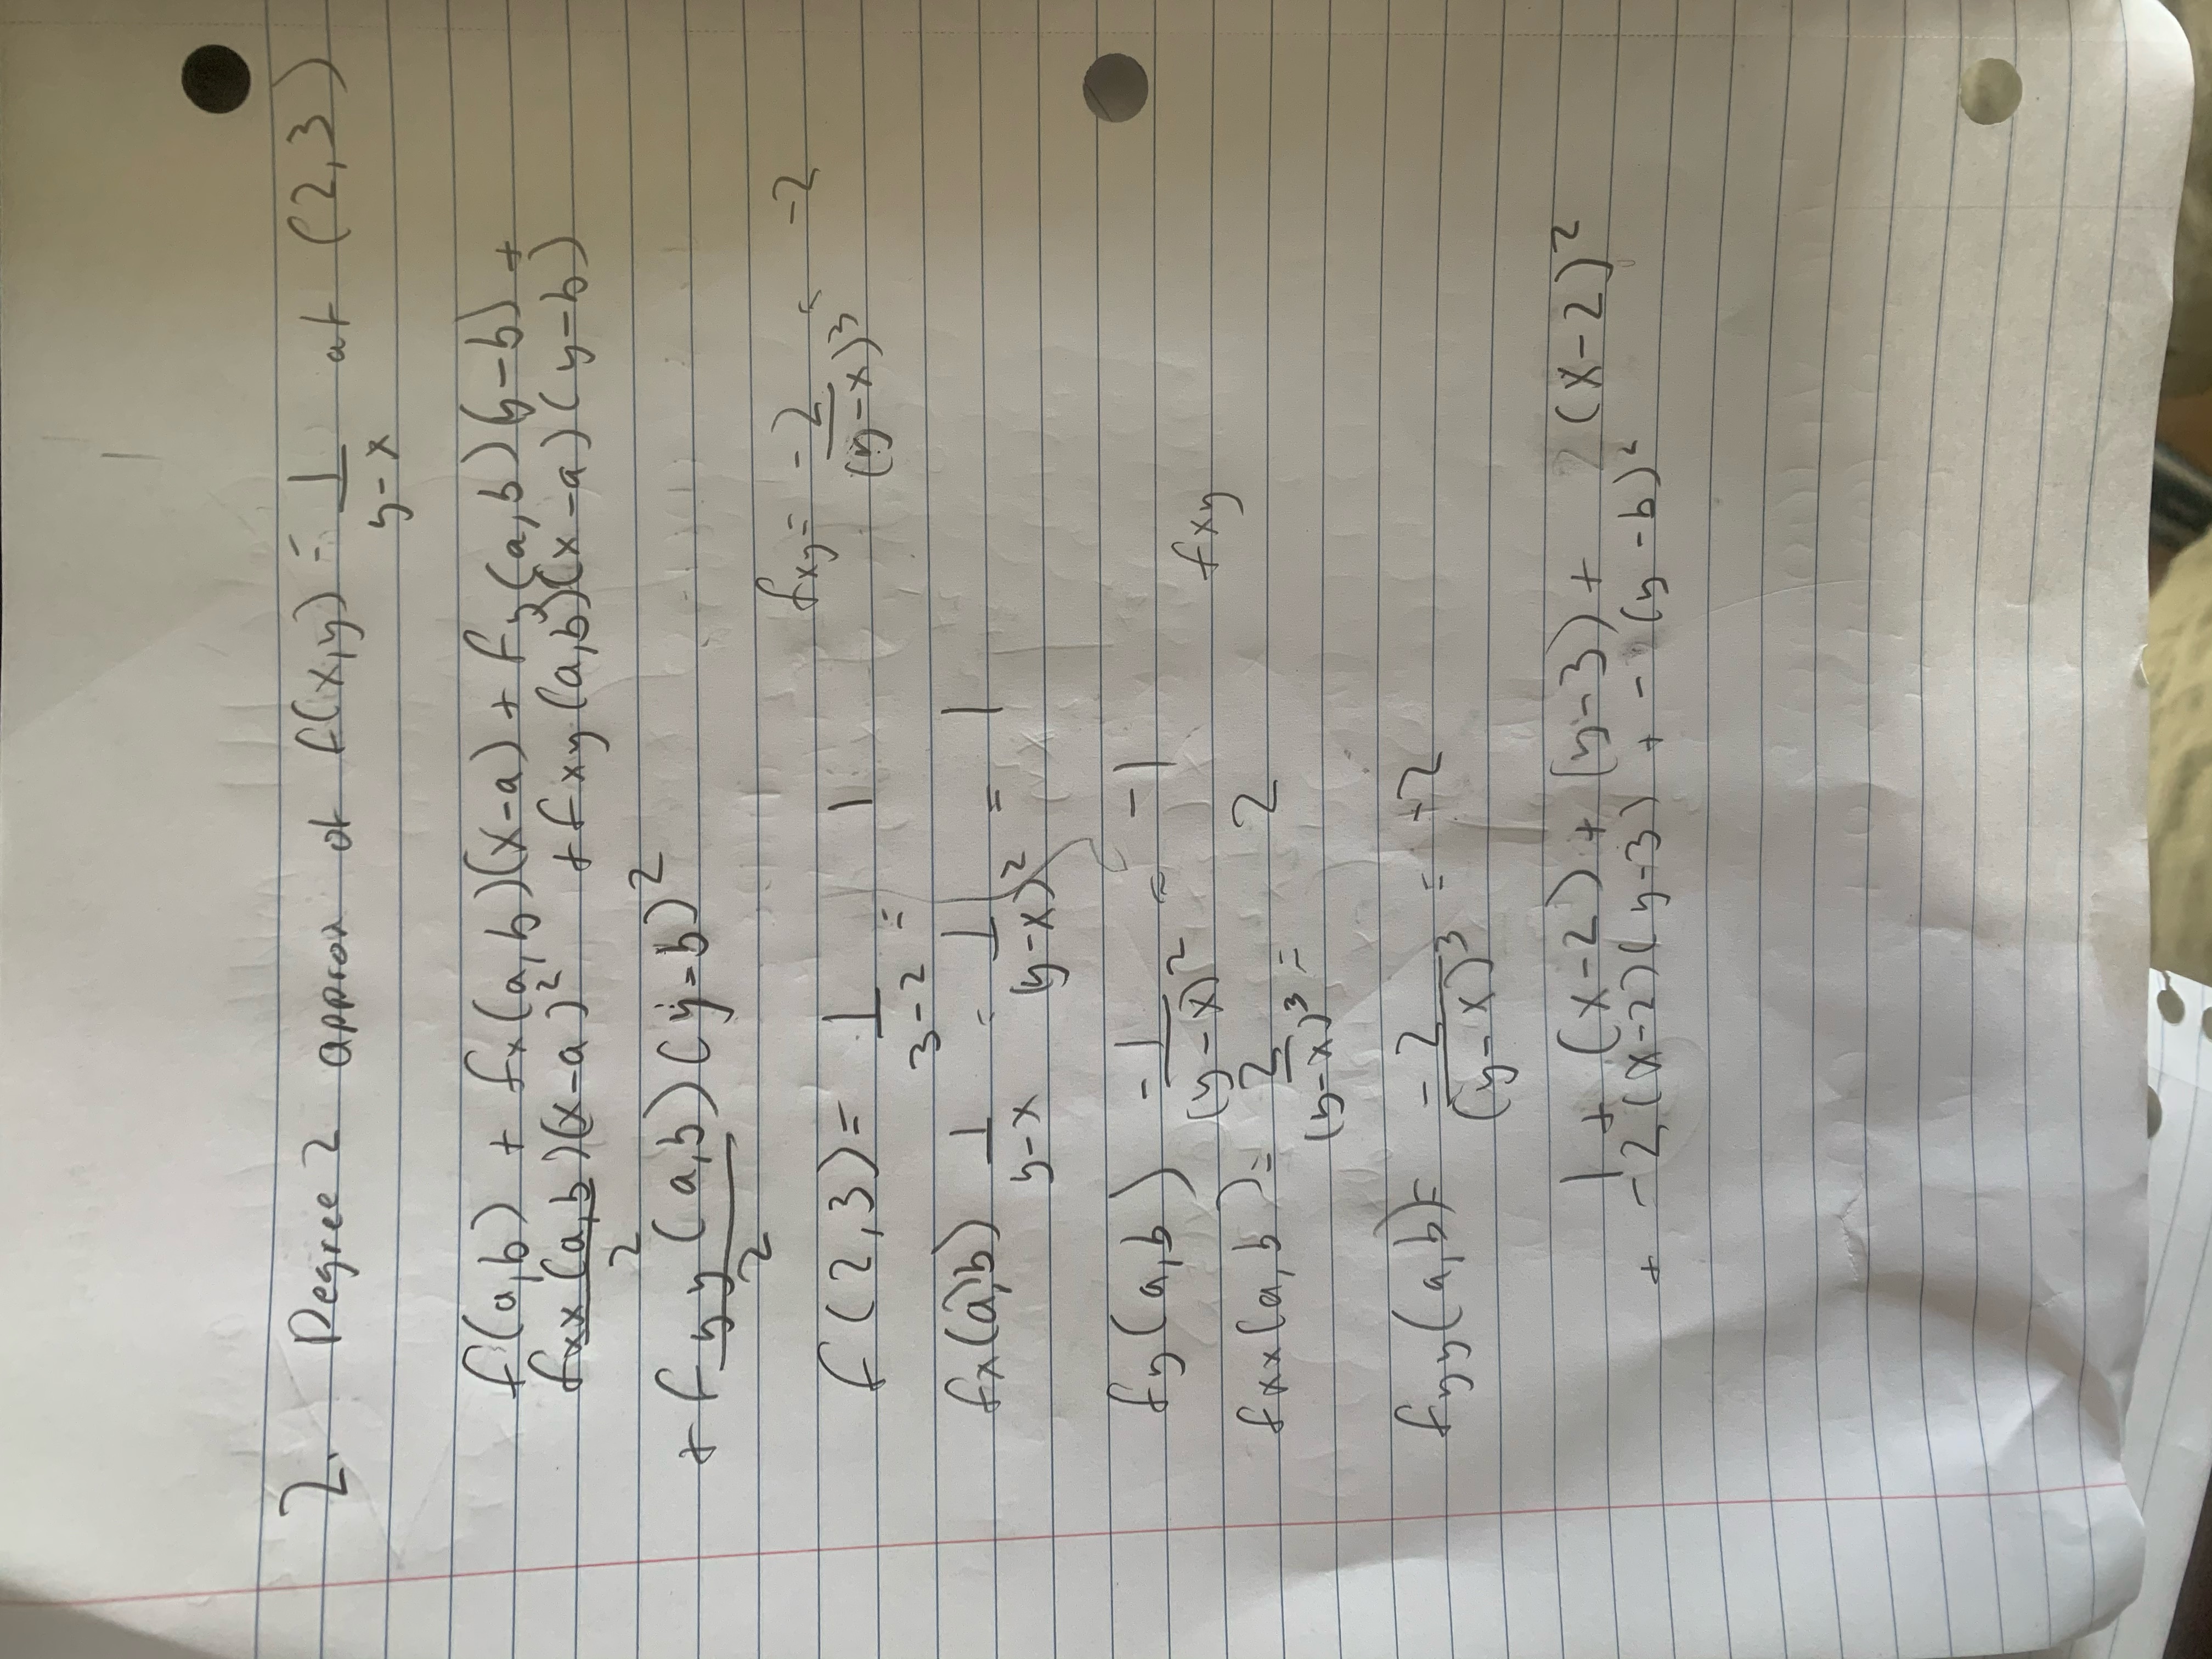 2. Degree 2 approx of f(x,y) = 1/(y-x) at (2,3)
f(a,b) + fx(a,b)(x-a) + fy(a,b)(y-b) +
fxx(a,b)/2 (x-a)² + fxy(a,b)(x-a)(y-b)
+ fyy(a,b)/2 (y-b)²
fxy = -2/(y-x)³ = -2
f(2,3) = 1/(3-2) = 1
fx(a,b) 1/(y-x) = 1/(y-x)² = 1
fy(a,b) -1/(y-x)² = -1
fxx(a,b) = 2/(y-x)³ = 2
fxy
fyy(a,b) = -2/(y-x)³ = +2
1 + (x-2) + (y-3) + (x-2)²
+ -2(x-2)(y-3) + -(y-b)²